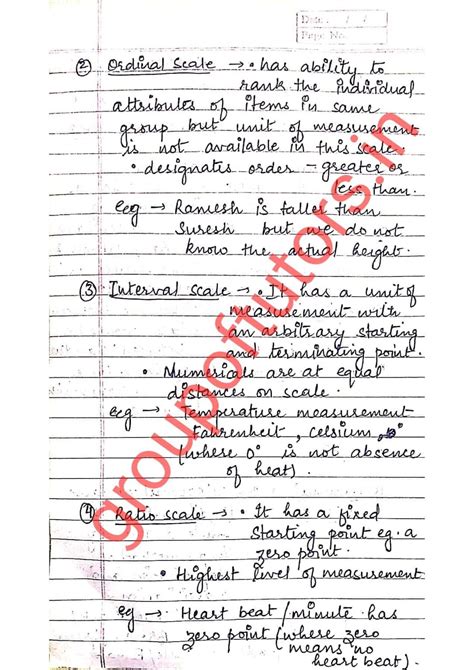 Date: / /
Page No.
② Ordinal Scale → • has ability to
rank the individual
attributes of items in same
group but unit of measurement
is not available in this scale.
• designates order - greater or
less than.
eg → Ramesh is taller than
Suresh but we do not
know the actual height.
③ Interval scale → • It has a unit of
measurement with
an arbitrary starting
and terminating point.
• Numericals are at equal
distances on scale.
eg → Temperature measurement
Fahrenheit, Celsium,
(where 0° is not absence
of heat).
④ Ratio scale → • It has a fixed
Starting point eg. a
zero point.
• Highest level of measurement
eg → Heart beat/minute has
zero point (where zero
means no
heart beat).
groupoftutors.in